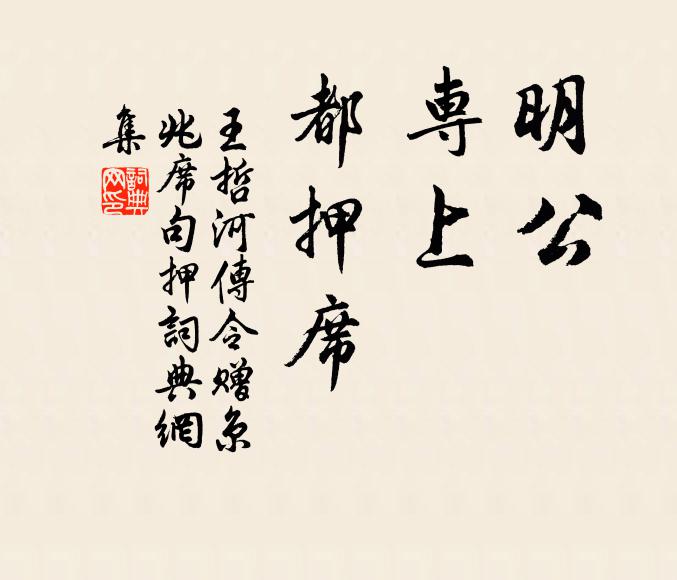 明公
専上
都押席
王哲河傳令贈京
兆席句押詞典網
集
詞典
网印